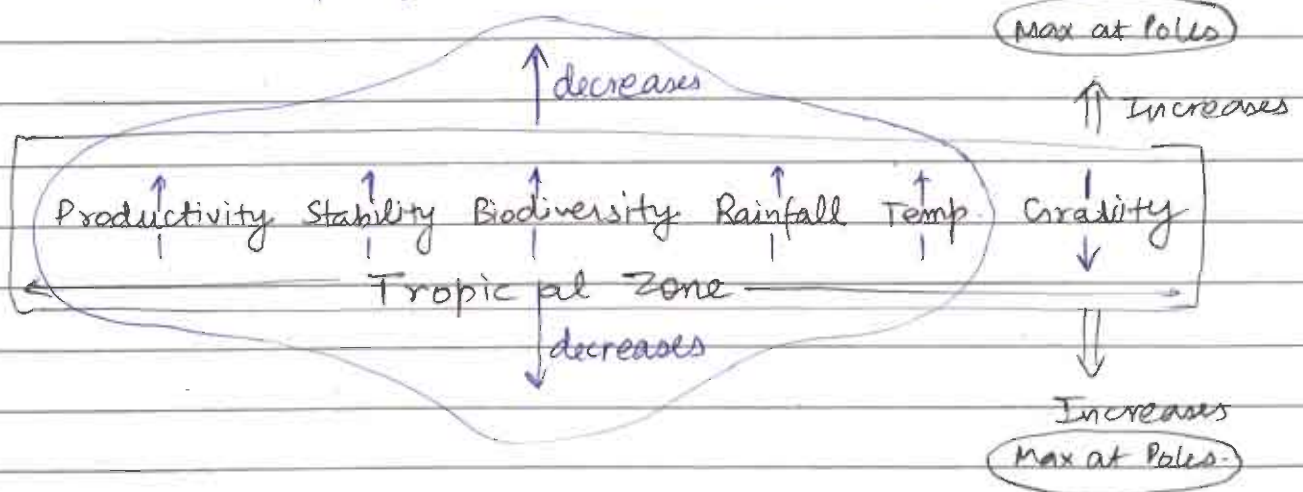 Max at Poles
decreases
Increases
Productivity Stability Biodiversity Rainfall Temp. Gradiity
Tropical Zone
decreases
Increases
Max at Poles.